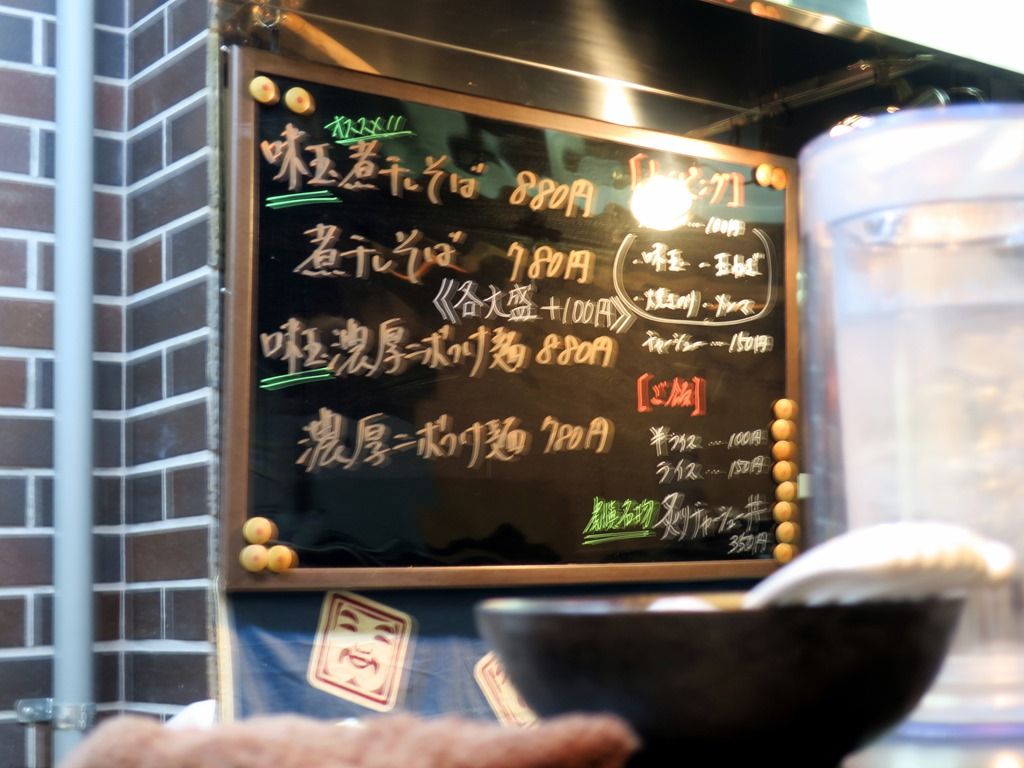 オススメ!!
味玉煮干しそば 880円
煮干しそば 780円
《各大盛+100円》
味玉濃厚ニボつけ麺 880円
濃厚ニボつけ麺 780円
[トッピング]
100円
・味玉 ・玉ねぎ
チャーシュー…150円
[ご飯]
半ライス…100円
ライス…150円
名物 炙りチャーシュー丼
350円